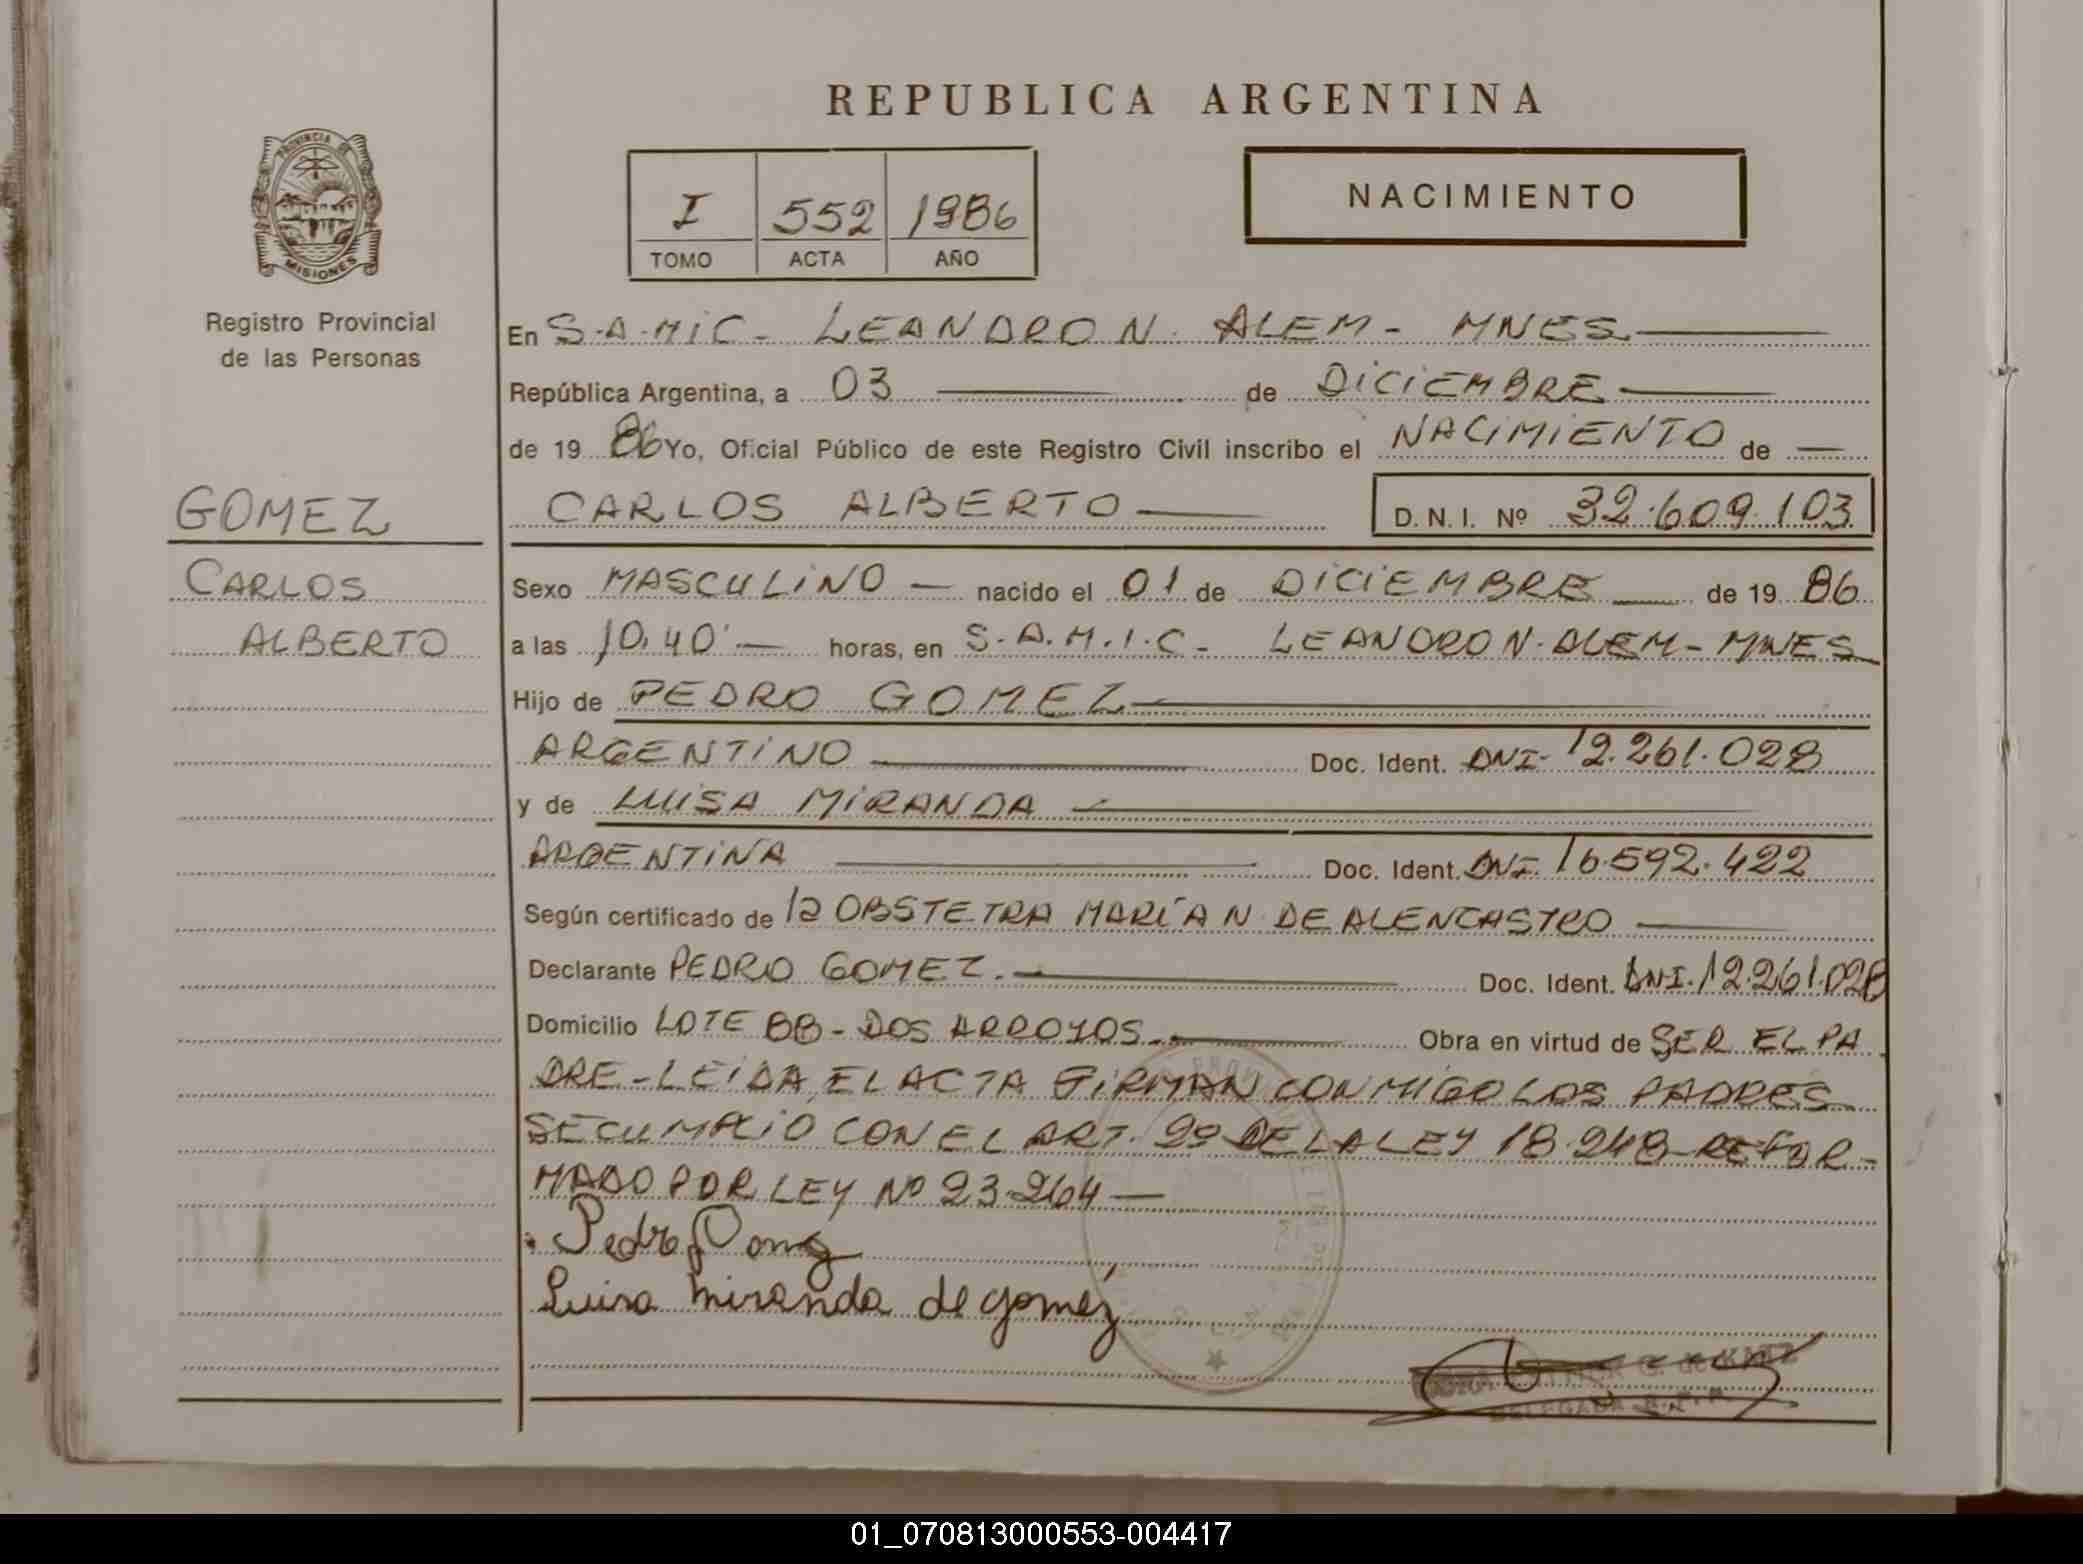 REPUBLICA ARGENTINA
PROVINCIA DE
MISIONES
Registro Provincial
de las Personas
I 552 1986
TOMO ACTA AÑO
NACIMIENTO
En S.A.MIC. LEANDRO N. ALEM - MNES
República Argentina, a 03 de DICIEMBRE
de 19 86 Yo, Oficial Público de este Registro Civil inscribo el NACIMIENTO de
GOMEZ
CARLOS ALBERTO D. N. I. Nº 32.609.103
CARLOS
ALBERTO
Sexo MASCULINO nacido el 01 de DICIEMBRE de 19 86
a las 10,40' horas, en S.A.M.I.C - LEANDRO N. ALEM - MNES
Hijo de PEDRO GOMEZ
ARGENTINO Doc. Ident. DNI- 12.261.028
y de LUISA MIRANDA
ARGENTINA Doc. Ident. DNI. 16.592.422
Según certificado de la OBSTETRA MARÍA N. DE ALENCASTRO
Declarante PEDRO GOMEZ. Doc. Ident. DNI. 12.261.028
Domicilio LOTE 88 - DOS ARROYOS. Obra en virtud de SER EL PA
DRE - LEIDA EL ACTA FIRMAN CONMIGO LOS PADRES
SE CUMPLIO CON EL ART. 2º DE LA LEY 18.248 REFOR-
MADO POR LEY Nº 23.264
Pedro
Luisa Miranda de Gomez
G. de KATZ
DELEGADA
01_070813000553-004417